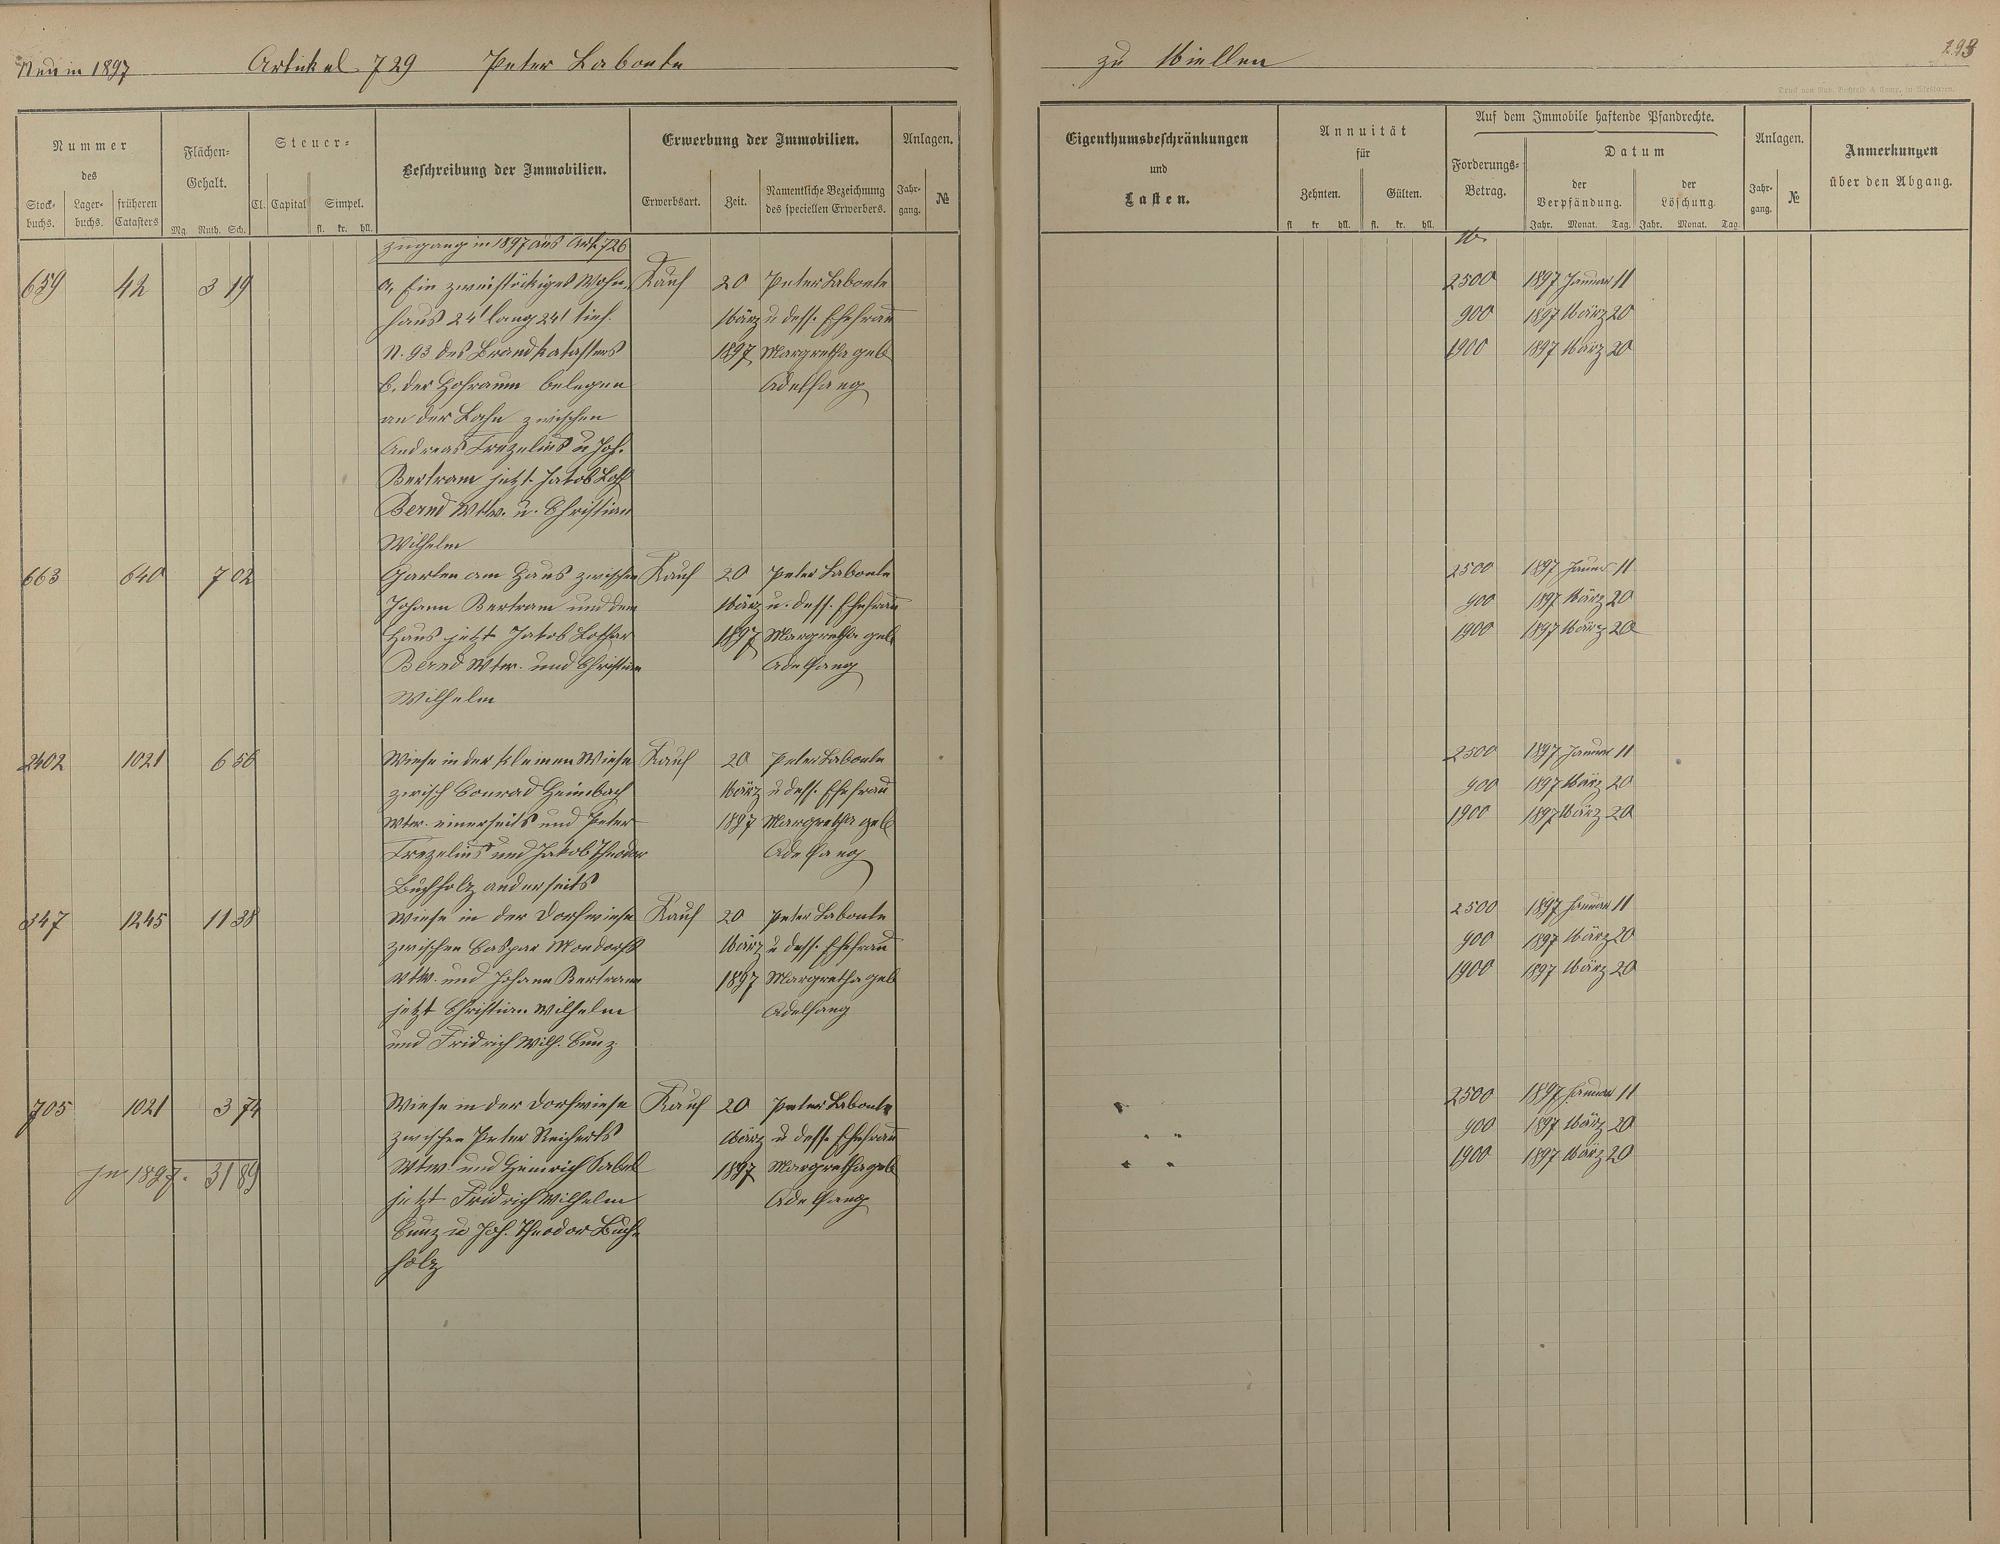 Neu in 1897 Artikel 729 Peter Labonte zu Miellen 293
Druck von Rud. Bechtold & Comp. in Wiesbaden.
Nummer
des
Stock-
buchs.
Lager-
buchs.
früheren
Catasters
Flächen-
Gehalt.
Mg. Ruth. Sch.
Steuer-
Cl. Capital Simpel.
fl. kr. hll.
Beschreibung der Immobilien.
Erwerbung der Immobilien.
Erwerbsart. Zeit.
Namentliche Bezeichnung
des speciellen Erwerbers.
Anlagen.
Jahr-
gang.
№
Eigenthumsbeschränkungen
und
Lasten.
Annuität
für
Zehnten. Gülten.
fl kr hll. fl. kr. hll.
Auf dem Immobile haftende Pfandrechte.
Forderungs-
Betrag.
Datum
der
Verpfändung.
der
Löschung
Jahr. Monat. Tag. Jahr. Monat. Tag
Anlagen.
Jahr-
gang.
№
Anmerkungen
über den Abgang.
Zugang in 1897 aus Art. 726
M.
659 42 3 19 a, Ein zweistöckiges Wohn- Kauf 20 Peter Labonte 2500 1897 Januar 11
haus 24' lang 24' tief. März u dess. Ehefrau 900 1897 März 20
N. 93 des Brandkatasters 1897 Margretha geb 1900 1897 März 20
b. der Hofraum belegen Adelfang
an der Lahn zwischen
Andreas Trezelius u Joh.
Bertram jetzt Jakob Loth
Bernd Wtw. u. Christian
Wilhelm
663 640 7 02 Garten am Haus zwischen Kauf 20 Peter Labonte 2500 1897 Januar 11
Johann Bertram und dem März u. dess. Ehefrau 900 1897 März 20
Haus jetzt Jakob Lothar 1897 Margretha geb 1900 1897 März 20
Bernd Wtw. und Christian Adelfang
Wilhelm
2402 1021 6 56 Wiese in der kleinen Wiese Kauf 20 Peter Labonte 2500 1897 Januar 11
zwisch Conrad Heimbach März u dess. Ehefrau 900 1897 März 20
Wtw. einerseits und Peter 1897 Margretha geb 1900 1897 März 20
Trezelius und Jakob Theodor Adelfang
Buchholz anderseits
347 1245 11 38 Wiese in der Dorfwiese Kauf 20 Peter Labonte 2500 1897 Januar 11
zwischen Caspar Mondorff März u dess. Ehefrau 900 1897 März 20
Wtw. und Johann Bertram 1897 Margretha geb 1900 1897 März 20
jetzt Christian Wilhelm Adelfang
und Fridrich Wilh. Cunz
705 1021 3 74 Wiese in der Dorfwiese Kauf 20 Peter Labonte 2500 1897 Januar 11
zwischen Peter Reicherts März u dess. Ehefrau 900 1897 März 20
In 1897. 31 89 Wtw. und Heinrich Sabel 1897 Margretha geb 1900 1897 März 20
jetzt Fridrich Wilhelm Adelfang
Cunz u Joh. Theodor Buch-
holz